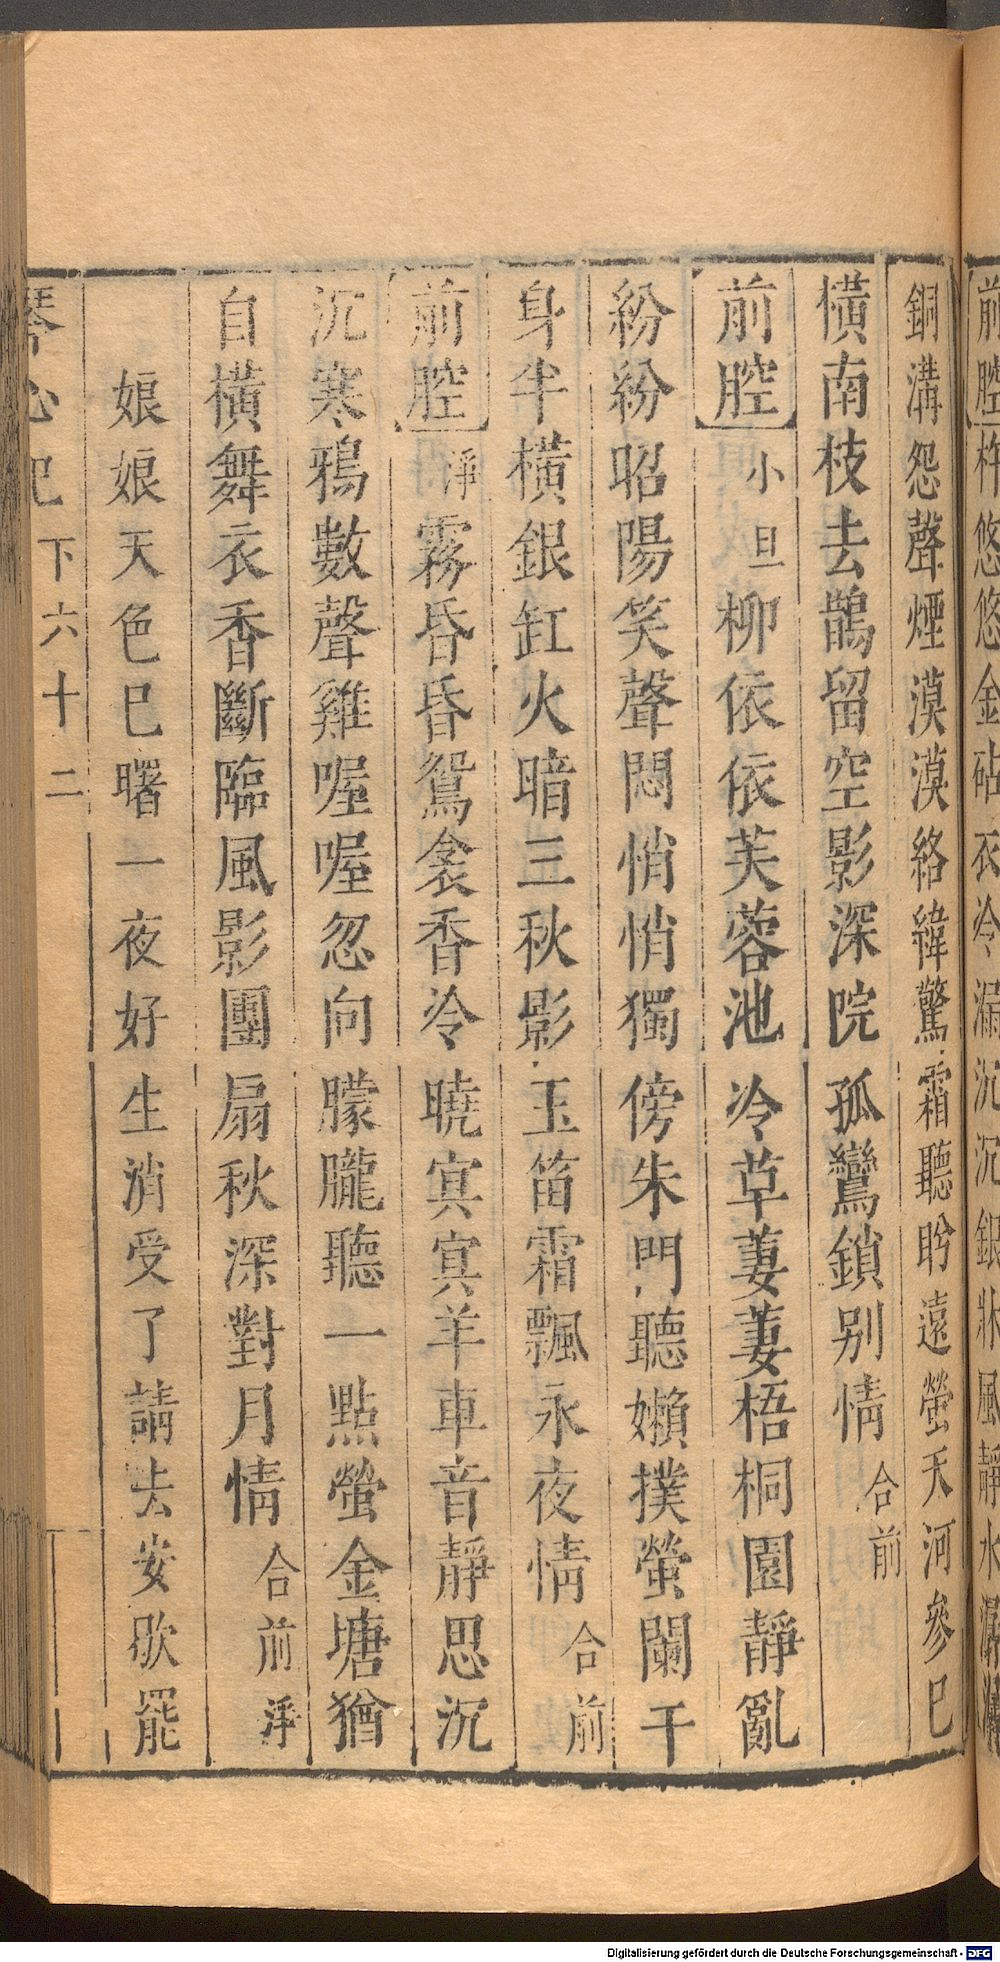 前腔杵悠悠金砧衣冷漏沉沉銀牀風靜水潺潺
銅溝怨聲煙漠漠絡緯驚霜聽盻遠螢天河參巳
橫南枝去鵲留空影深院孤鸞鎖别情合前
前腔小旦柳依依芙蓉池冷草萋萋梧桐園靜亂
紛紛昭陽笑聲悶悄悄獨傍朱門聽嬾撲螢闌干
身半橫銀缸火暗三秋影玉笛霜飄永夜情合前
前腔淨霧昏昏鴛衾香冷曉寘寘羊車音靜思沉
沉寒鴉數聲雞喔喔忽向朦朧聽一點螢金塘猶
自橫舞衣香斷臨風影團扇秋深對月情合前淨
娘娘天色巳曙一夜好生消受了請去安歇罷
琴心記下六十二
Digitalisierung gefördert durch die Deutsche Forschungsgemeinschaft - DFG